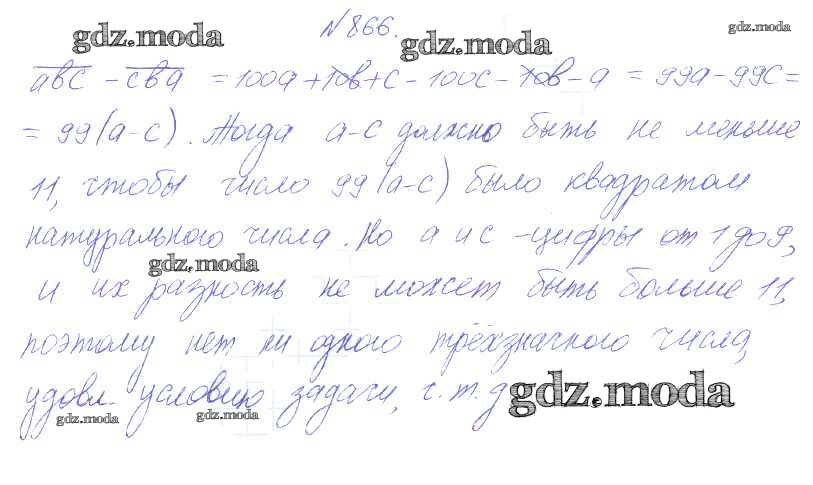 №866.
gdz.moda gdz.moda gdz.moda
abc - cba = 100a + 10b + c - 100c - 10b - a = 99a - 99c =
= 99(a-c). Тогда a-c должно быть не меньше
11, чтобы число 99(a-c) было квадратом
натурального числа. Но a и c - цифры от 1 до 9,
gdz.moda
и их разность не может быть больше 11,
поэтому нет ни одного трёхзначного числа,
удовл. условию задачи, ч.т.д
gdz.moda
gdz.moda gdz.moda